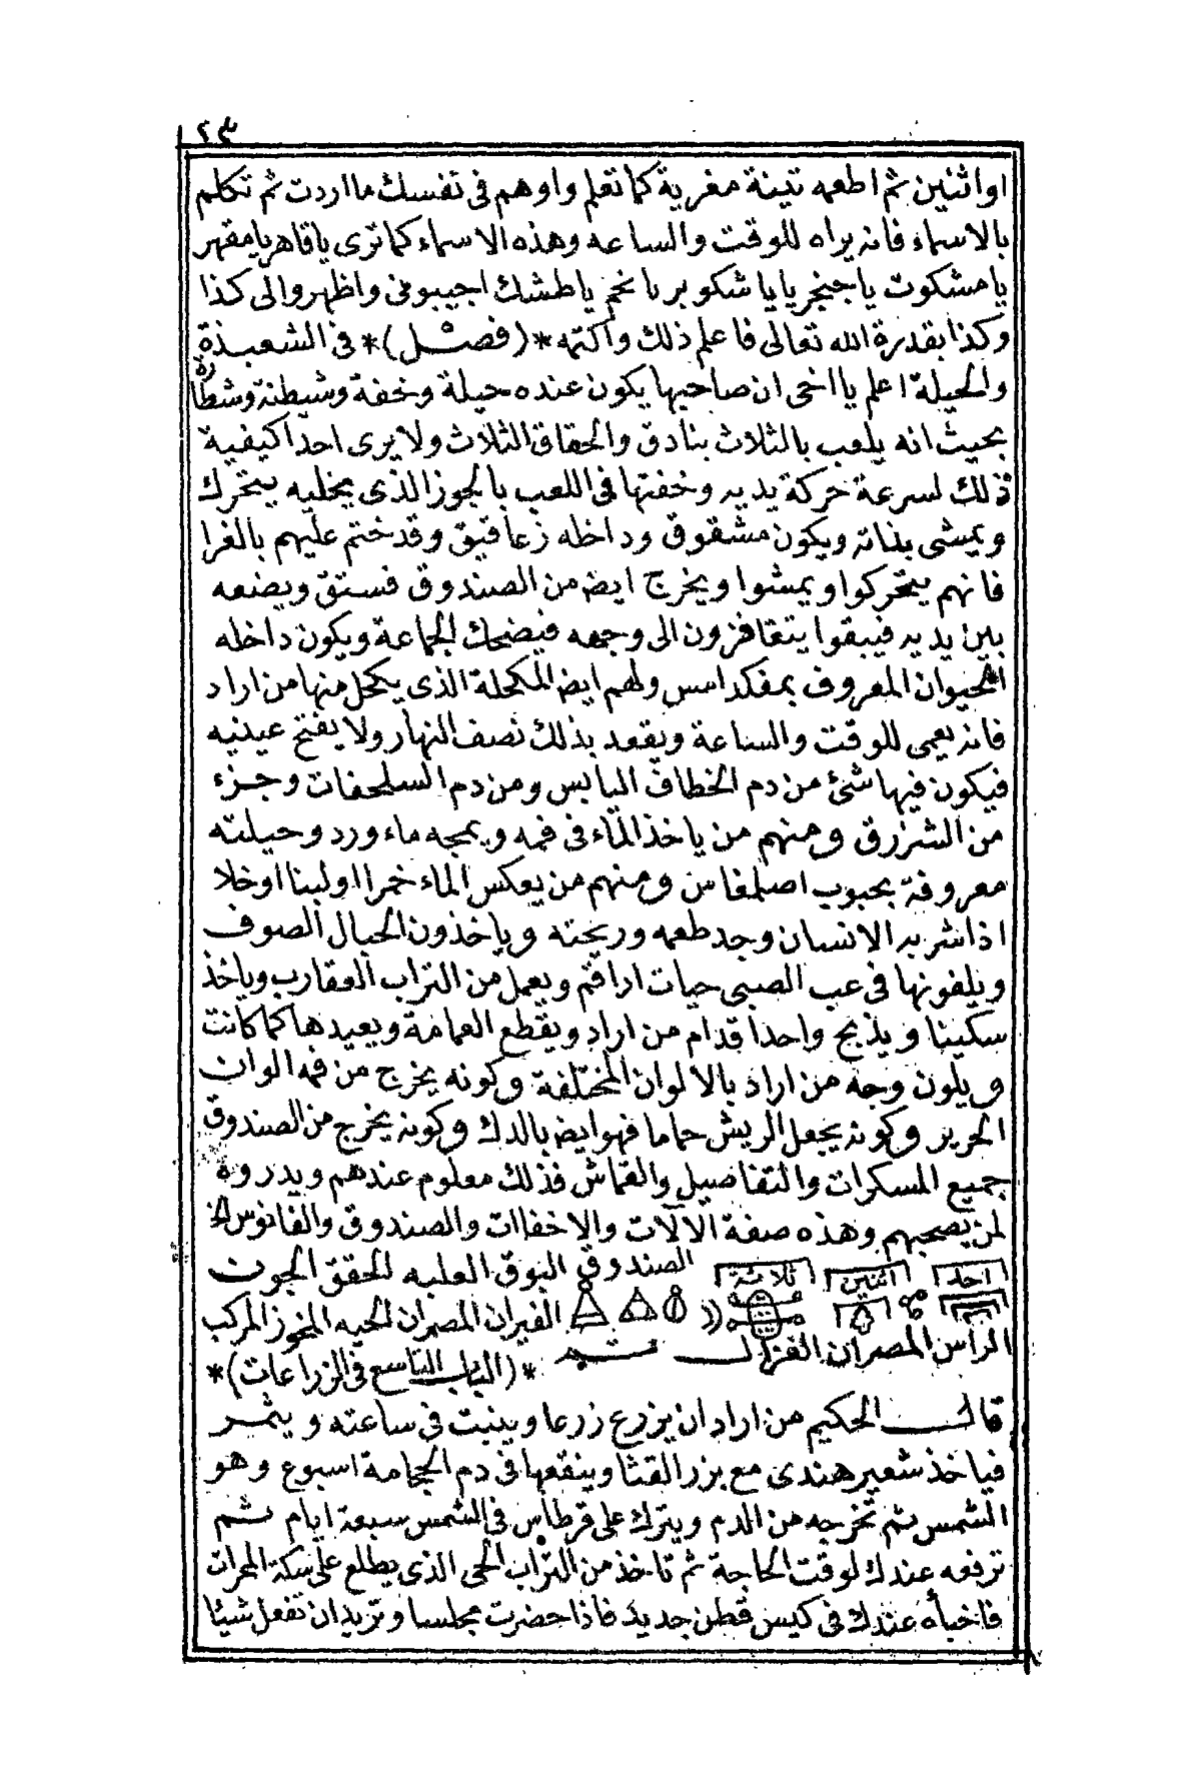 ٢٣
او اثنين ثم اطعمه تينة مغرية كما تعلم واوهم فى نفسك ما اردت ثم تكلم
بالاسماء فانه يراه للوقت والساعه وهذه الاسماء كما ترى يا قاهر يا مقهر
يا مشكوت يا جنجر يا يا شكو بريا نخم يا طشك اجيبونى واظهروا لى كذا
وكذا بقدرة الله تعالى فاعلم ذلك واكتمه *(فصل)* فى الشعبذة
والحيلة اعلم يا اخى ان صاحبها يكون عنده حيلة وخفة وشيطنة وشطارة
بحيث انه يلعب بالثلاث بنادق والحقاق الثلاث ولا يرى احدا كيفية
ذلك لسرعة حركة يديه وخفتها فى اللعب بالجوز الذى يخليه يتحرك
ويمشى بذاته ويكون مشقوق وداخله زعاقيق وقد ختم عليهم بالغرا
فانهم يتحركوا ويمشوا ويخرج ايضه من الصندوق فستق ويضعه
بين يديه فيبقوا يتقافزون الى وجهه فيضحك الجماعة ويكون داخله
الحيوان المعروف بمفكدامس ولهم ايضه المكحلة الذى يكحل منها من اراد
فانه يعمى للوقت والساعة ويقعد بذلك نصف النهار ولا يفتح عينيه
فيكون فيها شئ من دم الخطاف اليابس ومن دم السلحفات وجزء
من الشزرق ومنهم من ياخذ الماء فى فمه ويمجه ماء ورد وحيلته
معروفة بحبوب اصلمفاس ومنهم من يعكس الماء خمرا او لبنا او خلا
اذا شربه الانسان وجد طعمه وريحته وياخذون الحبال الصوف
ويلفونها فى عب الصبى حيات اراقم ويعمل من التراب العقارب وياخذ
سكينا ويذبح واحدا قدام من اراد ويقطع العمامة ويعيدها كما كانت
ويلون وجه من اراد بالالوان المختلفة وكونه يخرج من فمه الوان
الحرير وكونه يجعل الريش حماما فهو ايضه بالدك وكونه يخرج من الصندوق
جميع المسكرات والتفاصيل والقماش فذلك معلوم عندهم ويدروه
لمن يصحبهم وهذه صفة الالآت والاخفاات والصندوق والفانوس الخ
احد اثنين ثلاثة الصندوق البوق العلبه الحقق الجون
الفيران المصران الحيه المنجوز المركب
الراس المصران الغزال *(الباب التاسع فى الزراعات)*
قال الحكيم من اراد ان يزرع زرعا وينبت فى ساعته ويثمر
فياخذ شعير هندى مع بزر القثا وينقعها فى دم الحجامة اسبوع وهو
الشمس ثم تخرجه من الدم ويترك على قرطاس فى الشمس سبعة ايام ثم
ترفعه عندك لوقت الحاجة ثم تاخذ من التراب الحى الذى يطلع على سكة المحراث
فاخبأه عندك فى كيس قطن جديد فاذا حضرت مجلسا وتريد ان تفعل شيئا